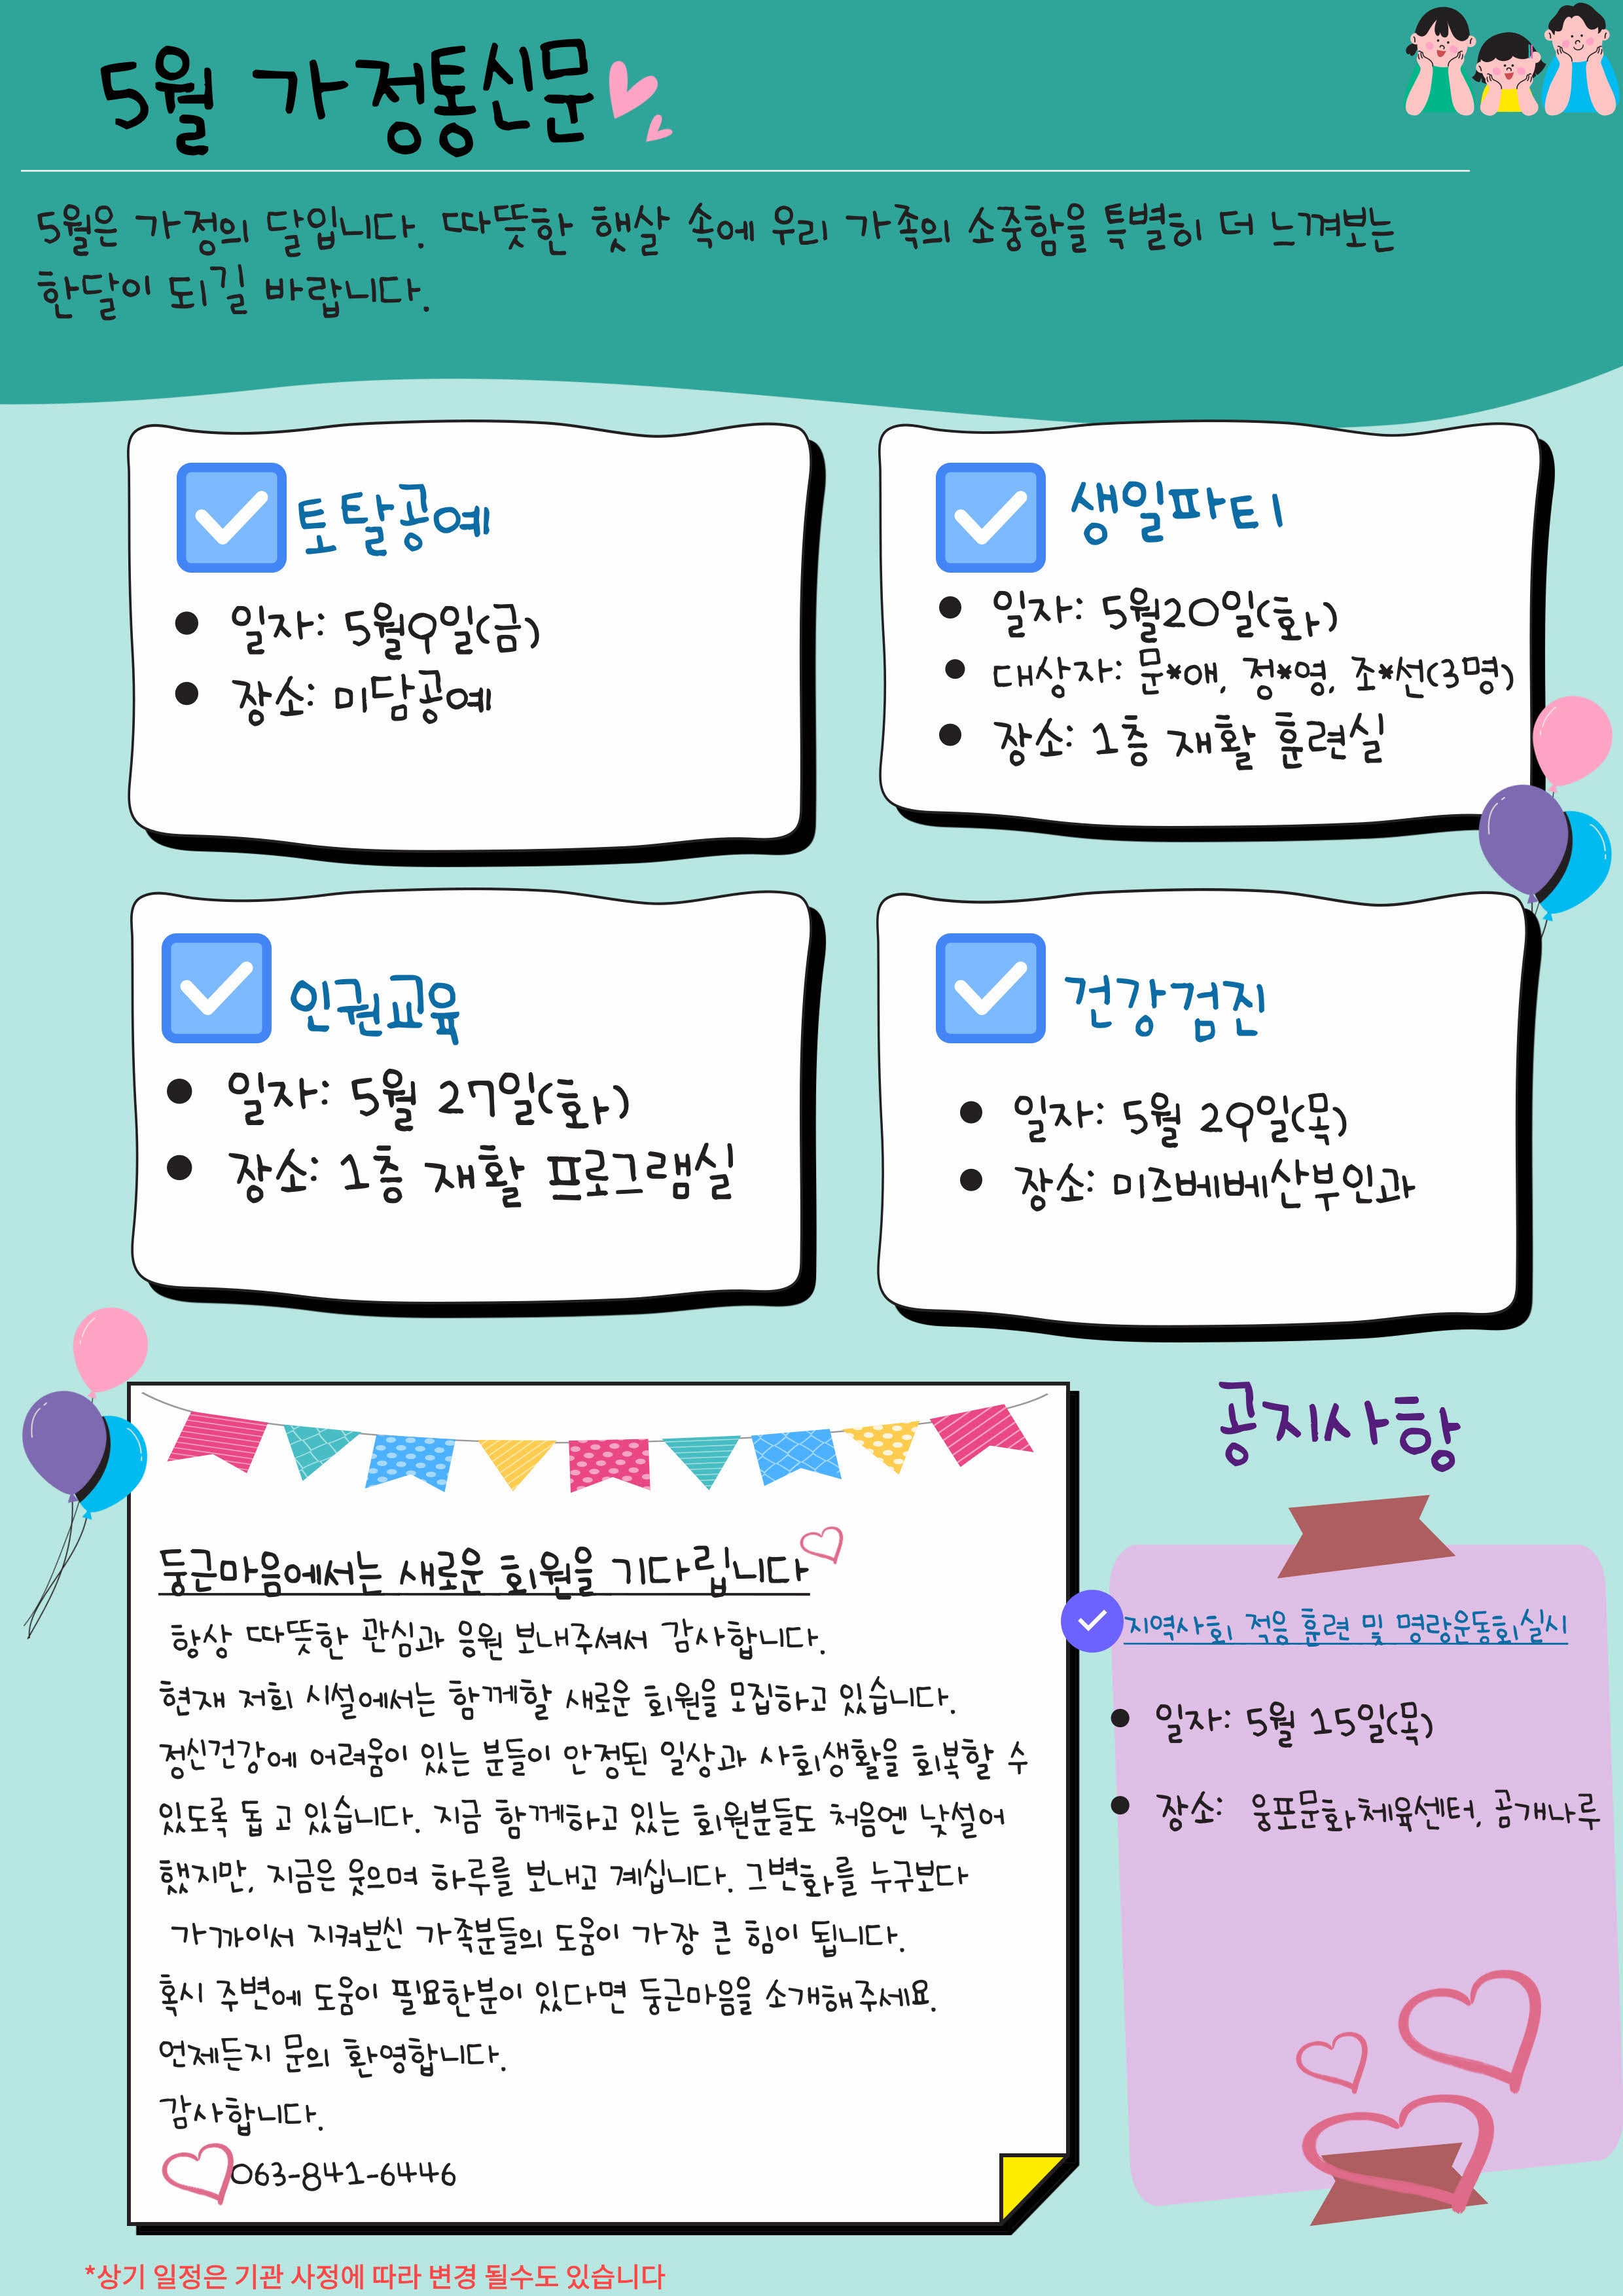 5월 가정통신문
5월은 가정의 달입니다. 따뜻한 햇살 속에 우리 가족의 소중함을 특별히 더 느껴보는
한달이 되길 바랍니다.
토탈공예
일자: 5월9일(금)
장소: 미담공예
생일파티
일자: 5월20일(화)
대상자: 문*애, 정*영, 조*선(3명)
장소: 1층 재활 훈련실
인권교육
일자: 5월 27일(화)
장소: 1층 재활 프로그램실
건강검진
일자: 5월 29일(목)
장소: 미즈베베산부인과
둥근마음에서는 새로운 회원을 기다립니다
항상 따뜻한 관심과 응원 보내주셔서 감사합니다.
현재 저희 시설에서는 함께할 새로운 회원을 모집하고 있습니다.
정신건강에 어려움이 있는 분들이 안정된 일상과 사회생활을 회복할 수
있도록 돕 고 있습니다. 지금 함께하고 있는 회원분들도 처음엔 낯설어
했지만, 지금은 웃으며 하루를 보내고 계십니다. 그변화를 누구보다
가까이서 지켜보신 가족분들의 도움이 가장 큰 힘이 됩니다.
혹시 주변에 도움이 필요한분이 있다면 둥근마음을 소개해주세요.
언제든지 문의 환영합니다.
감사합니다.
063-841-6446
공지사항
지역사회 적응 훈련 및 명랑운동회실시
일자: 5월 15일(목)
장소: 웅포문화체육센터, 곰개나루
*상기 일정은 기관 사정에 따라 변경 될수도 있습니다